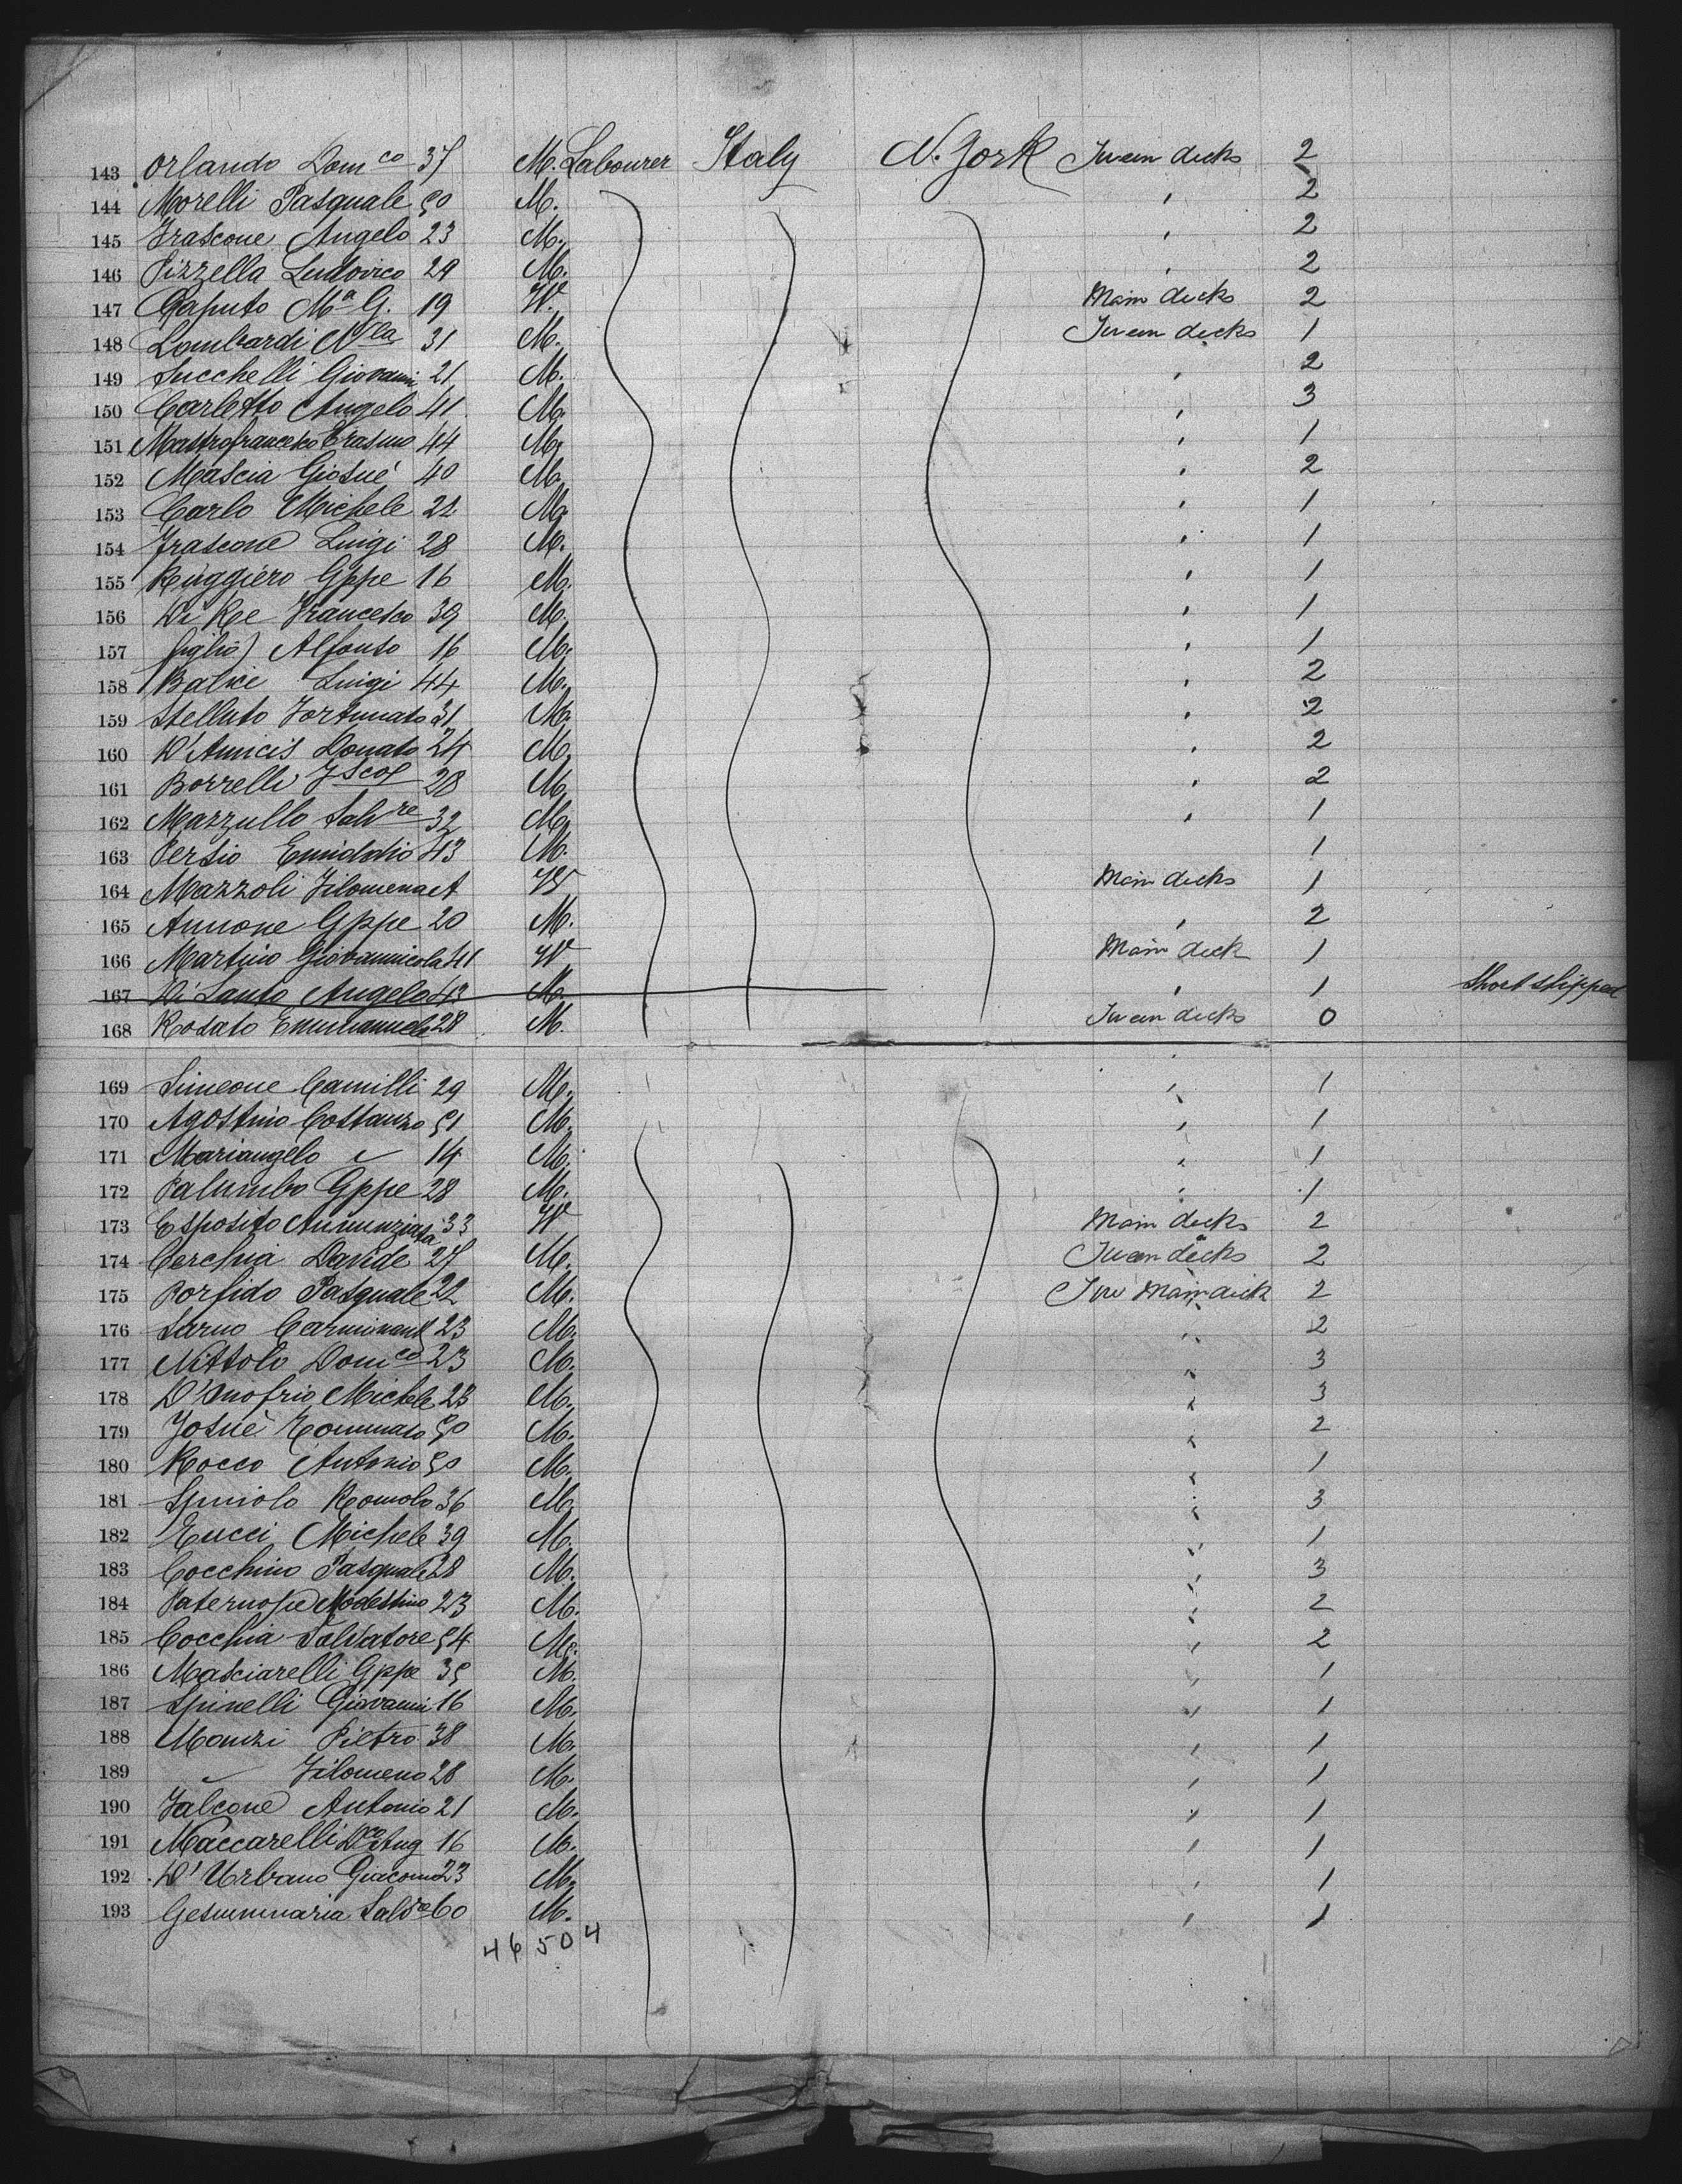 143 Orlando Dom co 37 M. Labourer Italy N. York Tween decks 2
144 Morelli Pasquale 50 M. " 2
145 Frascone Angelo 23 M. " 2
146 Pizzella Ludovico 29 M. " 2
147 Caputo Ma G. 19 W. Main decks 2
148 Lombardi Nla 31 M. Tween decks 1
149 Succhelli Giovanni 21 M. " 2
150 Carletto Angelo 41 M. " 3
151 Mastrofrancesco Erasmo 44 M. " 1
152 Mascia Giosué 40 M. " 2
153 Carlo Michele 22 M. " 1
154 Frascone Luigi 28 M. " 1
155 Ruggiero Gppe 16 M. " 1
156 Di Re Francesco 39 M. " 1
157 figlio) Alfonso 16 M. " 1
158 Balice Luigi 44 M. " 2
159 Stelluto Fortunato 31 M. " 2
160 D'Amicis Donato 24 M. " 2
161 Borrelli 28 M. " 2
162 Mazzullo Salvre 32 M. " 1
163 Persio Emiddio 43 M. 1
164 Mazzoli Filomena W Main decks 1
165 Annone Gppe 20 M. " 2
166 Martino Giovannicola 41 W Main deck 1
167 Di Santo Angelo 43 M. " 1 Short shipped
168 Rosato Emmanuele 28 M. Tween decks 0
169 Simeone Camilli 29 M. " 1
170 Agostino Costanzo 51 M. " 1
171 Mariangelo " 14 M. " 1
172 Palumbo Gppe 28 M. " 1
173 Esposito Annunziata 33 W Main decks 2
174 Cerchia Davide 27 M. Tween decks 2
175 Porfido Pasquale 22 M. Main deck 2
176 Sarno 23 M. " 2
177 Nittolo Dom co 23 M. " 3
178 D'Onofrio Michele 23 M. " 3
179 Josuè Tommaso 50 M. " 2
180 Rocco Antonio 50 M. " 1
181 Romolo 36 M. " 3
182 Michele 39 M. " 1
183 Cocchino Pasquale 28 M. " 3
184 Modestino 23 M. " 2
185 Cocchia Salvatore 54 M. " 2
186 Masciarelli Gppe 35 M. " 1
187 Spinelli Giovanni 16 M. " 1
188 Manzi Pietro 38 M. " 1
189 " Filomeno 28 M. " 1
190 Falcone Antonio 21 M. " 1
191 Maccarelli Dco Ang 16 M. " 1
192 D'Urbano Giacomo 23 M. " 1
193 Gesummaria Salvre 60 M. " 1
46 50 4